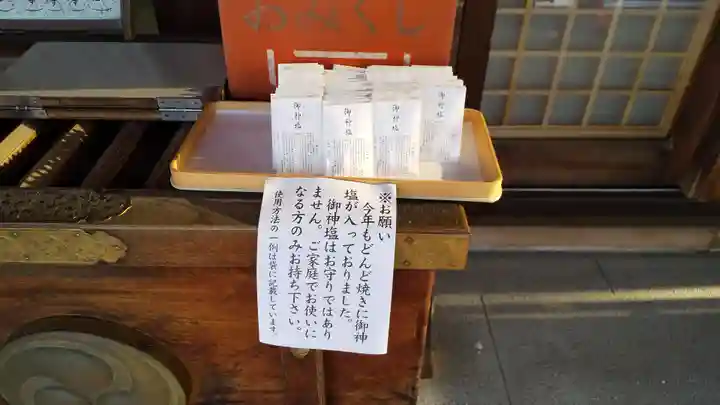 おみくじ
御神塩
御神塩
御神塩
御神塩
※お願い
今年もどんど焼きに御神
塩が入っておりました。
御神塩はお守りではあり
ません。ご家庭でお使いに
なる方のみお持ち下さい。
使用方法の一例は袋に記載しています。